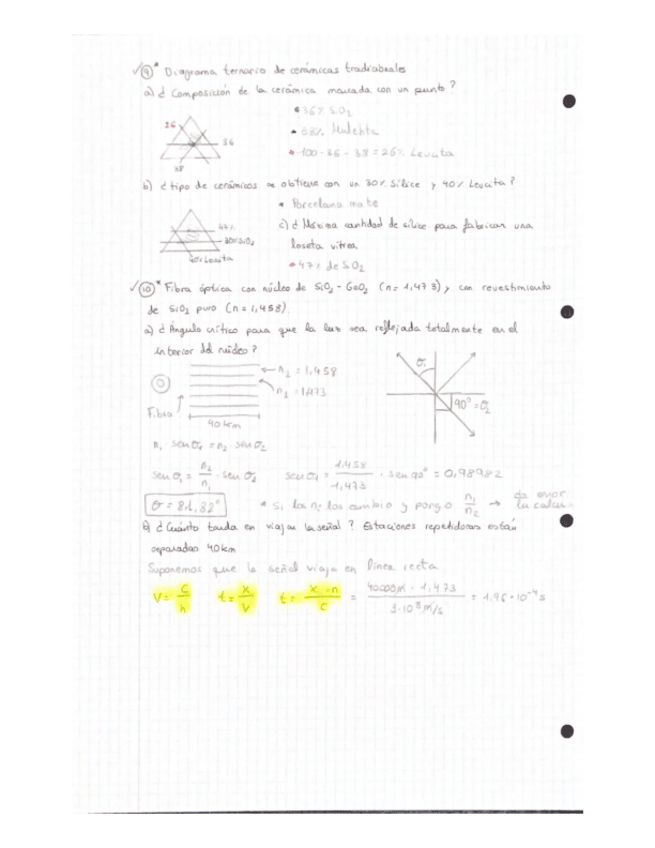 ✓ 9* Diagrama ternario de cerámicas tradicionales
a) ¿ Composición de la cerámica marcada con un punto ?
26
36
38
• 36% SiO2
• 38% Mulenta
• 100 - 36 - 38 = 26% Leucita
b) ¿ tipo de cerámicas se obtiene con un 30% Sílice y 40% Leucita ?
• Porcelana mate
47%
30% SiO2
40% Leucita
c) ¿ Máxima cantidad de sílice para fabricar una
loseta vítrea
• 47% de SiO2
✓ 10* Fibra óptica con núcleo de SiO2 - GeO2 (n = 1,473) y con revestimiento
de SiO2 puro (n = 1,458).
a) ¿ Ángulo crítico para que la luz sea reflejada totalmente en el
interior del núcleo ?
n2 = 1,458
n1 = 1,473
Fibra
40 km
θ1
90º = θ2
n1 sen θ1 = n2 · sen θ2
sen θ1 = n2/n1 · sen θ2 sen θ1 = 1,458/1,473 · sen 90º = 0,98982
θ = 81,82º
* Si las n: las cambio y pongo n1/n2 → da error
b) ¿ Cuánto tarda en viajar la señal ? Estaciones repetidoras están
separadas 40 km
Suponemos que la señal viaja en línea recta
V = C/n t = x/V t = x · n/C = 40000 m · 1,473/3·10⁸ m/s = 1,96 · 10⁻⁴ s